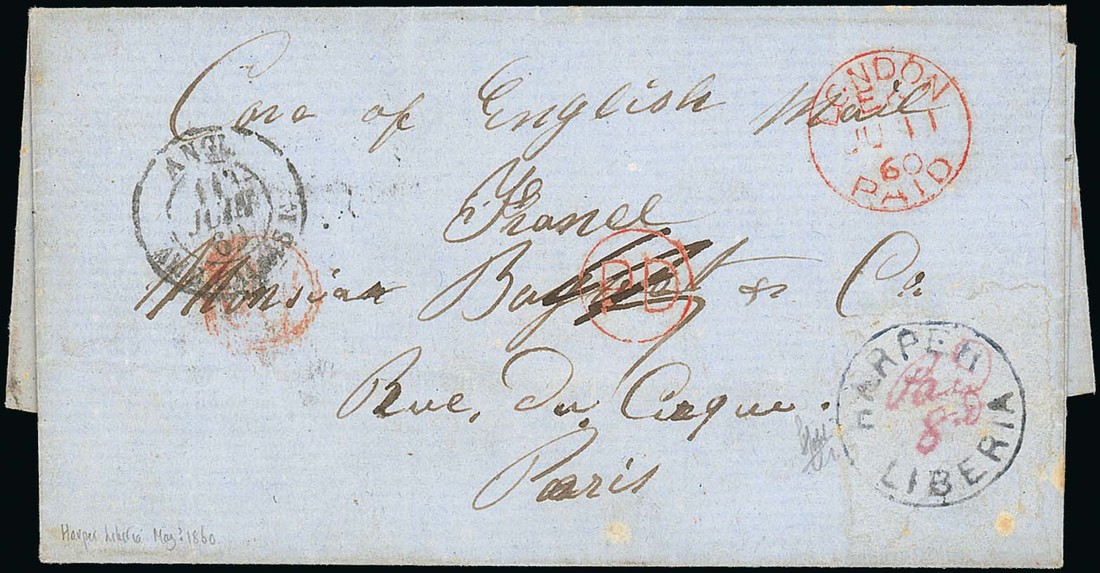 Care of English Mail
France.
Monsieur & Co
Rue, du Cirque.
Paris
LONDON
JU 11
60
PAID
ANGL.
JUIN
60
PD
HARPER
Paid
8d
LIBERIA
Harper Liberia May? 1860